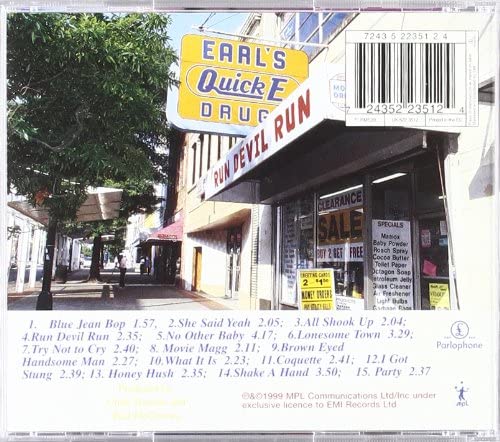 7243 5 22351 2 4
7 24352 23512 4
EARL'S
Quick E
DRUG
RUN DEVIL RUN
CLEARANCE
SALE
BUY 2 GET FREE
TRADING CARDS
MONEY ORDERS
SPECIALS
Baby Powder
Roach Spray
Cocoa Butter
Toilet Paper
Octagon Soap
Petroleum Jelly
Glass Cleaner
Air Freshener
Light Bulbs
Garbage Bags
1. Blue Jean Bop 1.57, 2.She Said Yeah 2.05; 3.All Shook Up 2.04;
4.Run Devil Run 2.35; 5.No Other Baby 4.17; 6.Lonesome Town 3.29;
7.Try Not to Cry 2.40; 8. Movie Magg 2.11; 9.Brown Eyed
Handsome Man 2.27; 10.What It Is 2.23; 11.Coquette 2.41; 12.I Got
Stung 2.39; 13. Honey Hush 2.35; 14.Shake A Hand 3.50; 15. Party 2.37
Parlophone
mpl
℗&©1999 MPL Communications Ltd/Inc under
exclusive licence to EMI Records Ltd